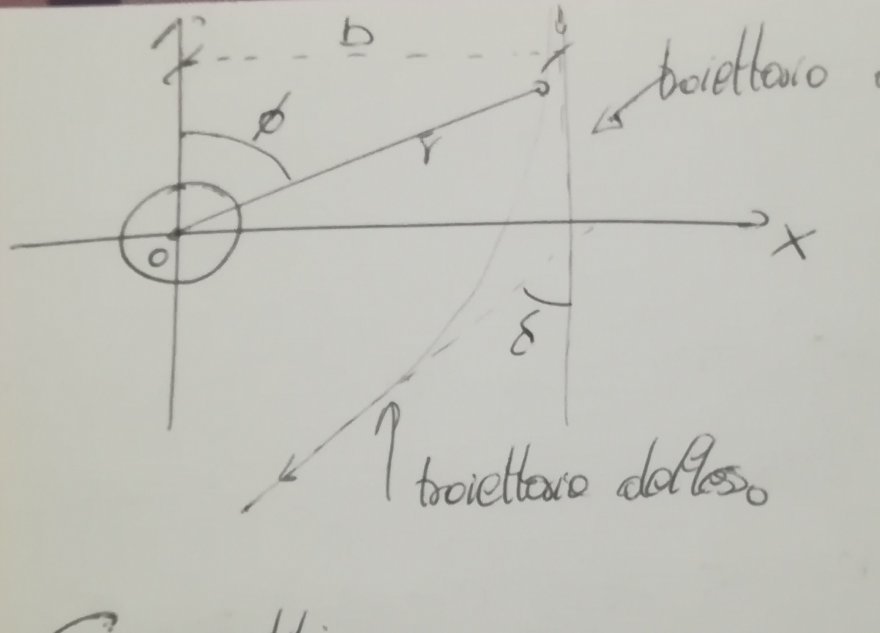 b
ϕ
traiettoria
r
O
X
δ
traiettoria deflessa